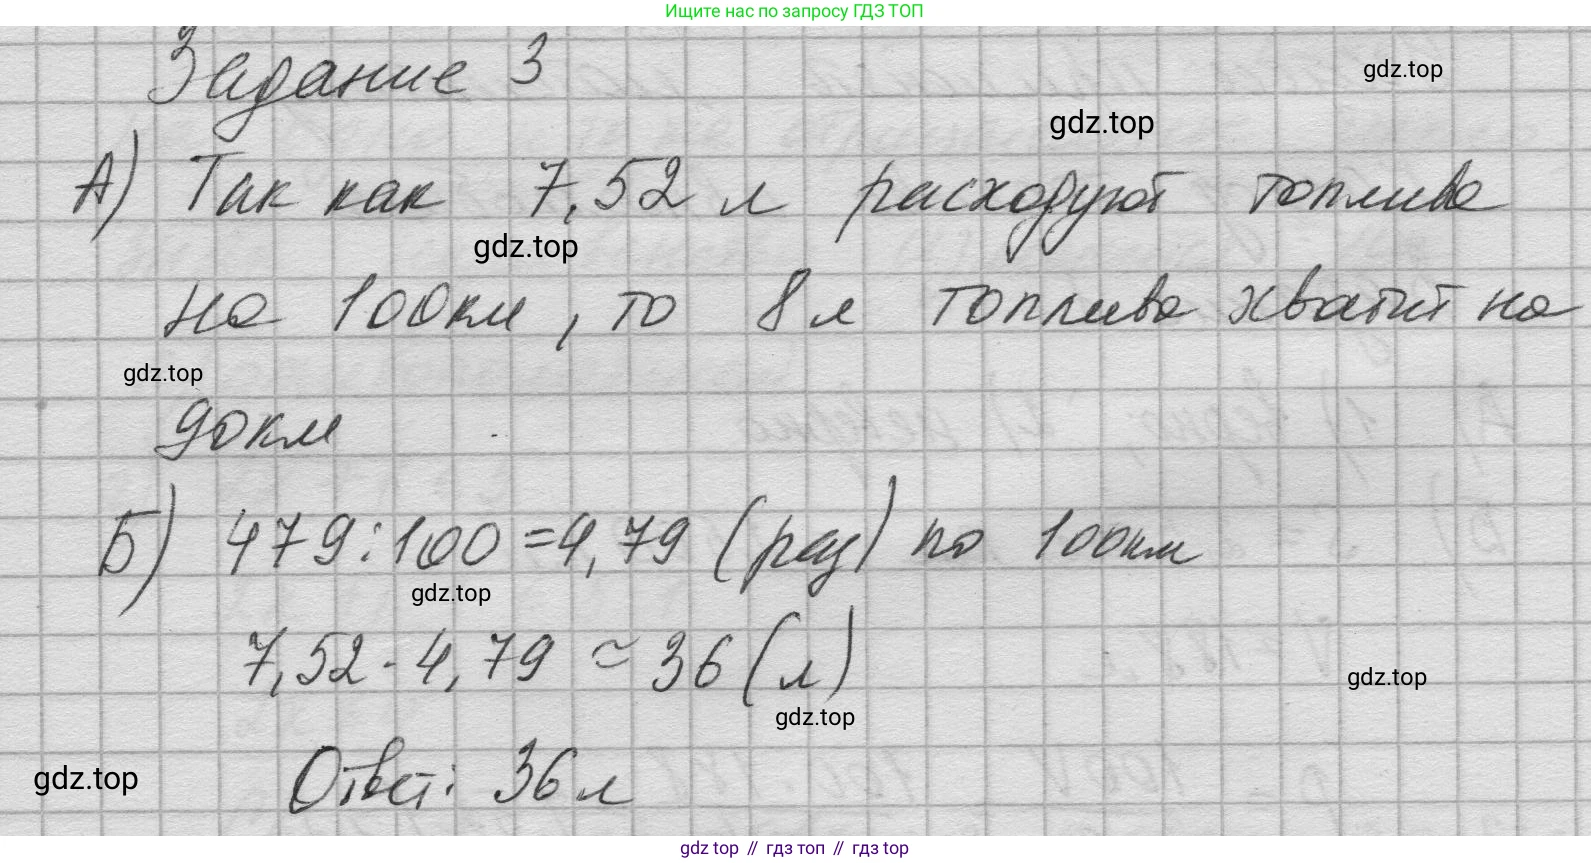 Ищите нас по запросу ГДЗ ТОП
Задание 3
gdz.top
gdz.top
А) Так как 7,52 л расходуют топлива
gdz.top
на 100км, то 8л топлива хватит на
gdz.top
90км
Б) 479:100=4,79 (раз) по 100км
gdz.top
7,52·4,79≈36(л)
gdz.top
gdz.top
Ответ: 36л
gdz.top
gdz top // гдз топ // гдз top